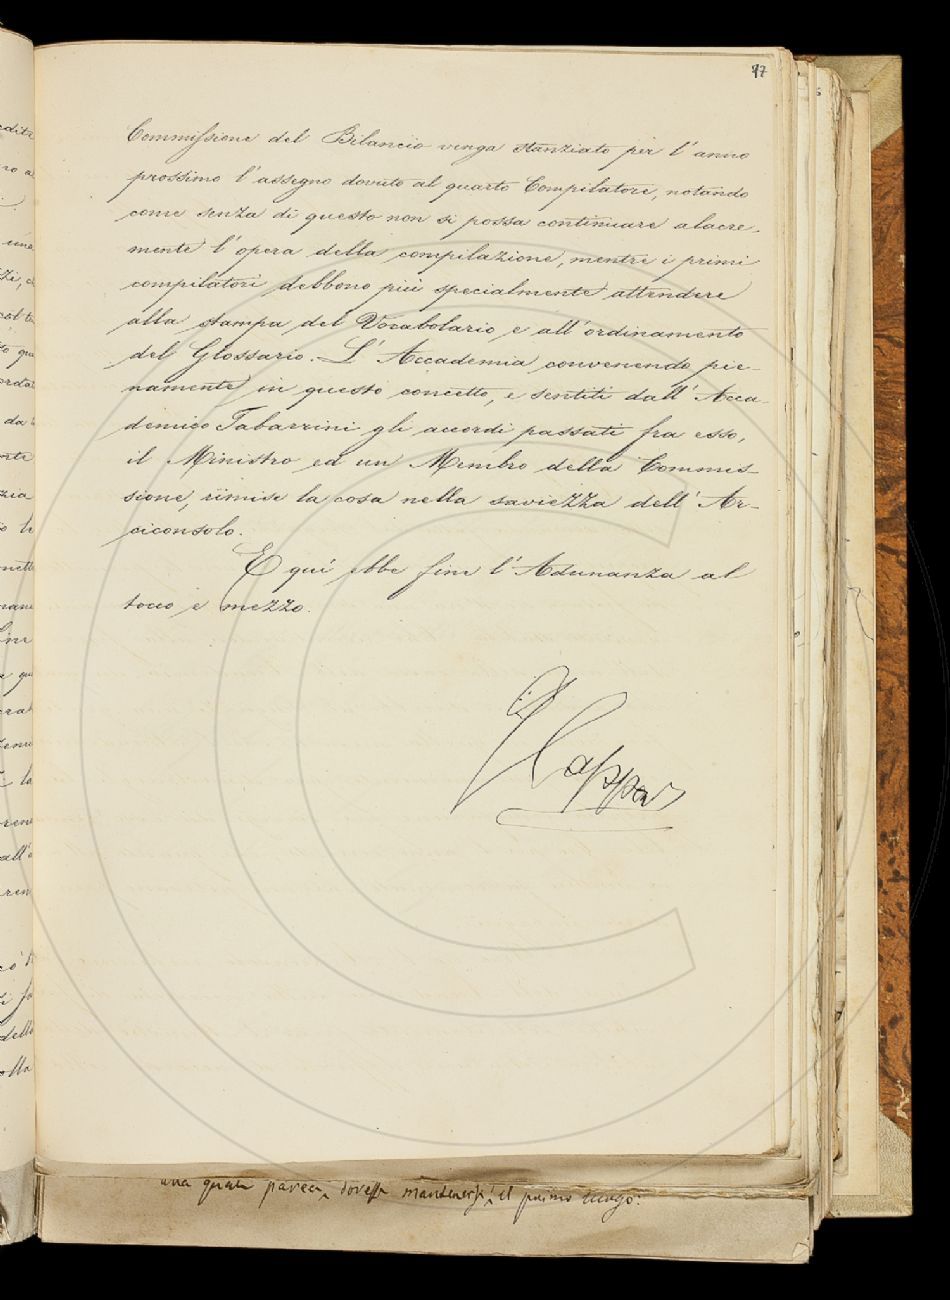 97
Commissione del Bilancio venga stanziato per l'anno
prossimo l'assegno dovuto al quarto Compilatore, notando
come senza di questo non si possa continuare alacre-
mente l'opera della compilazione, mentre i primi
compilatori debbono più specialmente attendere
alla stampa del Vocabolario e all'ordinamento
del Glossario. L'Accademia convenendo pie-
namente in questo concetto, e sentiti dall'Acca-
demico Tabarrini gli accordi passati fra esso,
il Ministro ed un Membro della Commis-
sione, rimise la cosa nella saviezza dell'Ar-
ciconsolo.
E qui ebbe fine l'Adunanza al
tocco e mezzo.
una parea dovesse mantenersi il primo luogo.